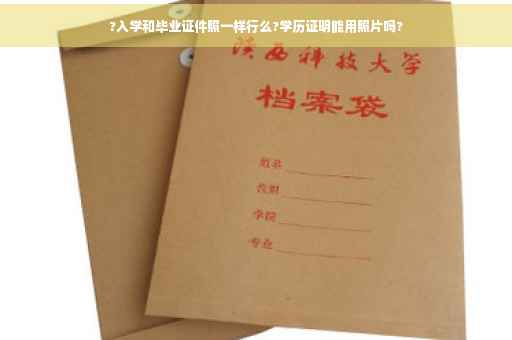 ?入学和毕业证件照一样行么?学历证明能用照片吗?
陕西科技大学
档案袋
姓名
学院
专业